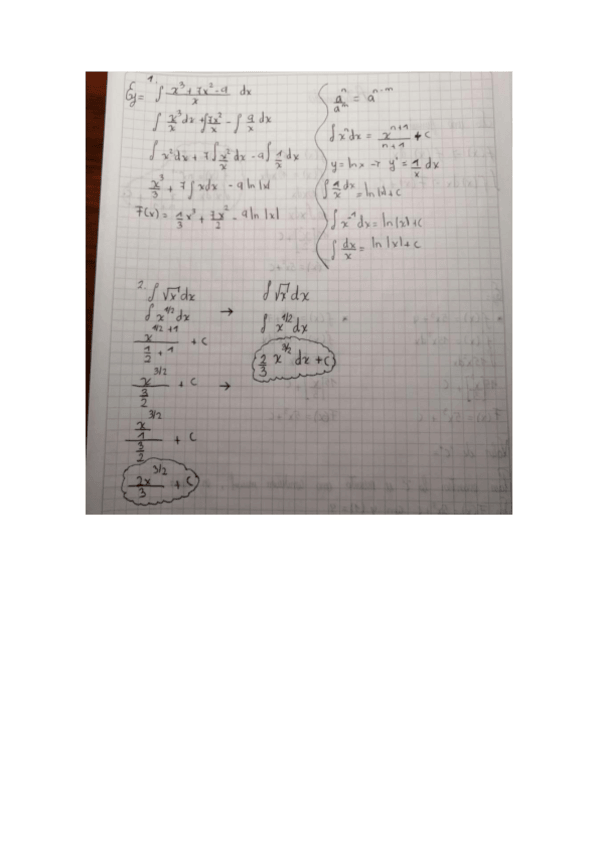 Ej= 1. ∫ (x³ + 7x² - 9)/x dx
∫ x³/x dx + ∫ 7x²/x - ∫ 9/x dx
∫ x² dx + 7 ∫ x²/x dx - 9 ∫ 1/x dx
x³/3 + 7 ∫ x dx - 9 ln |x|
F(x) = 1/3 x³ + 7x²/2 - 9 ln |x|
aⁿ/aᵐ = aⁿ⁻ᵐ
∫ xⁿ dx = xⁿ⁺¹/(n+1) + C
y = ln x → y' = 1/x dx
∫ 1/x dx = ln |x| + C
∫ x⁻¹ dx = ln |x| + C
∫ dx/x = ln |x| + C
2. ∫ √x dx
∫ x^(1/2) dx →
x^(1/2 + 1)/(1/2 + 1) + C
x^(3/2)/(3/2) + C →
(x^(3/2)/1)/(3/2) + C
2x^(3/2)/3 + C
∫ √x dx
∫ x^(1/2) dx
2/3 x^(3/2) dx + C